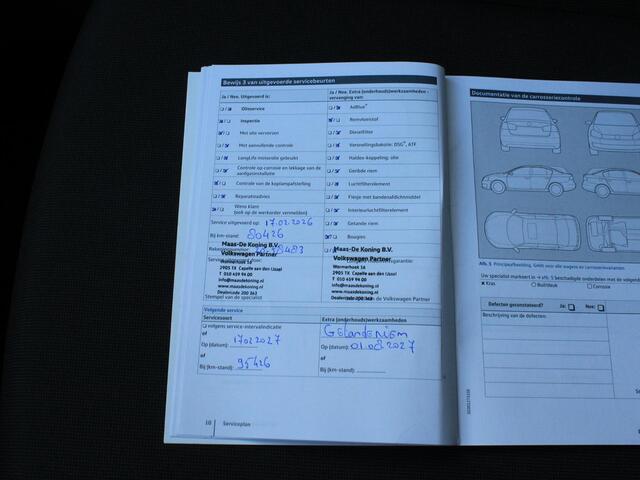 Bewijs 3 van uitgevoerde servicebeurten
Ja / Nee, Uitgevoerd is:
Olieservice
Inspectie
Met olie verversen
Met aanvullende controle
LongLife motorolie gebruikt
Controle op corrosie en lekkage van de
aardgasinstallatie
Controle van de koplampafstelling
Reparatieadvies
Wens klant
(ook op de werkorder vermelden)
Service uitgevoerd op: 17.02.2026
Bij km-stand: 80426
Maas-De Koning B.V.
Volkswagen Partner
Wormerhoek 16
2905 TX Capelle aan den IJssel
T 010 419 94 00
info@maasdekoning.nl
www.maasdekoning.nl
Dealercode 200 363
Stempel van de specialist
Ja / Nee, Extra (onderhouds)werkzaamheden -
vervanging van:
AdBlue®
Remvloeistof
Dieselfilter
Versnellingsbakolie: DSG®, ATF
Haldex-koppeling: olie
Geribde riem
Luchtfilterelement
Flesje met bandenafdichtmiddel
Interieurluchtfilterelement
Getande riem
Bougies
Maas-De Koning B.V.
Volkswagen Partner
Wormerhoek 16
2905 TX Capelle aan den IJssel
T 010 419 94 00
info@maasdekoning.nl
www.maasdekoning.nl
Dealercode 200 363
de Volkswagen Partner
Volgende service
Servicesoort
volgens service-intervalindicatie
of
Op (datum): 17022027
of
Bij (km-stand): 95426
Extra (onderhouds)werkzaamheden
Op (datum): 01.08.2027
of
Bij (km-stand):
10 Serviceplan
Documentatie van de carrosseriecontrole
Afb. 5 Principeafbeelding. Geldt voor alle wagens en carrosserievarianten.
Uw specialist markeert in → afb. 5 beschadigde onderdelen met de volgend
x Kras
Buil/deuk
Corrosie
Defecten geconstateerd?
Ja:
Nee:
Beschrijving van de defecten: